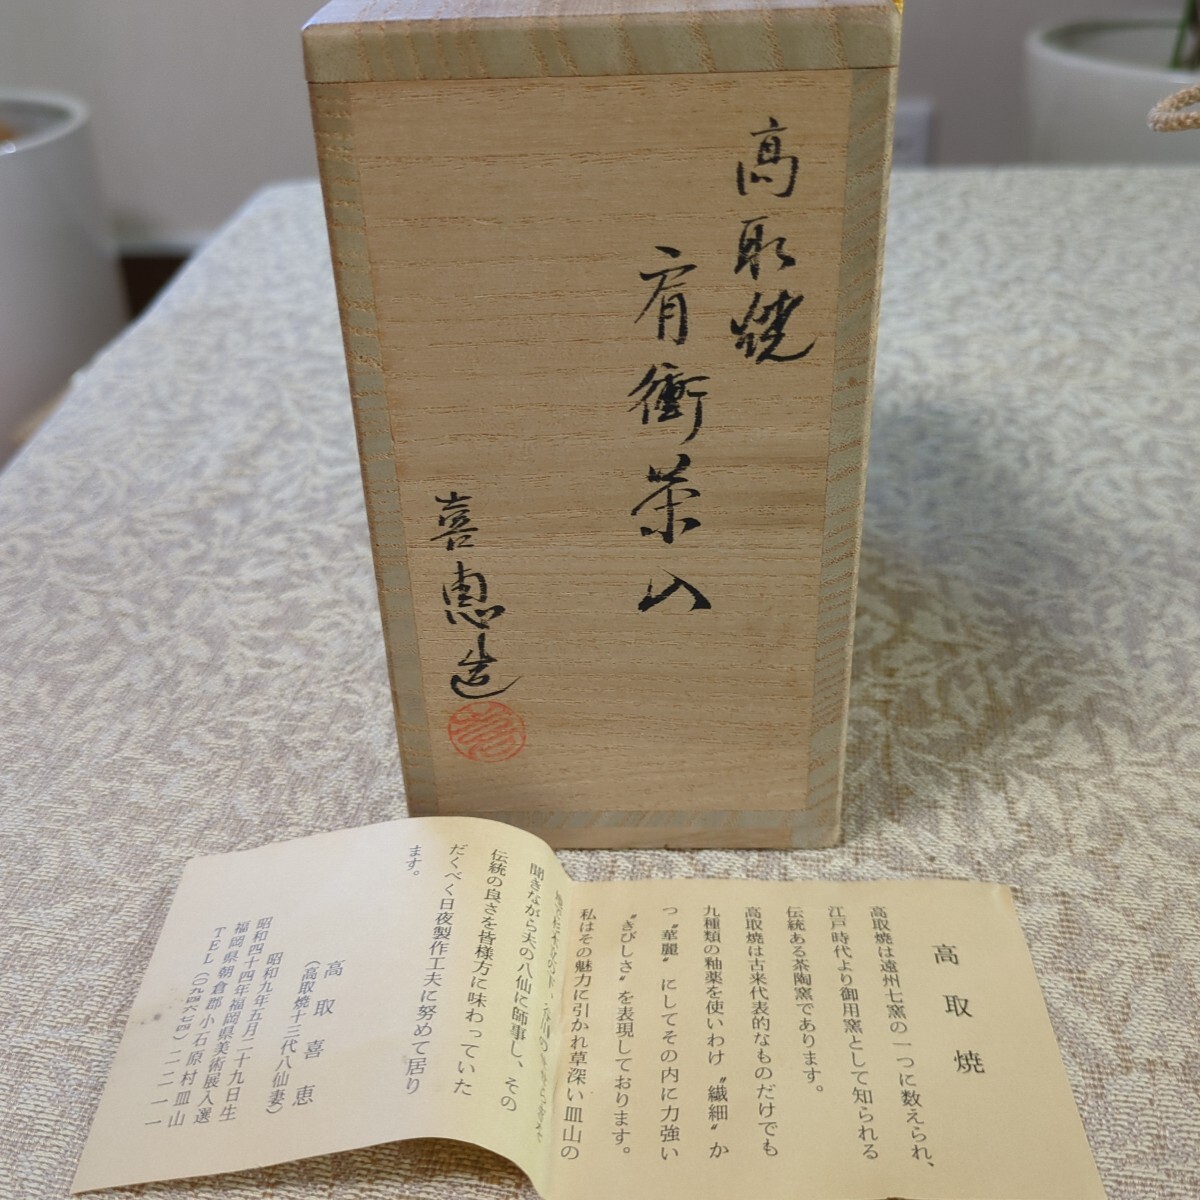 高取焼
肩衝茶入
喜恵造
高取焼
高取焼は遠州七窯の一つに数えられ、
江戸時代より御用窯として知られる
伝統ある茶陶窯であります。
高取焼は古来代表的なものだけでも
九種類の釉薬を使いわけ〝繊細〟か
つ〝華麗〟にしてその内に力強い
〝きびしさ〟を表現しております。
私はその魅力に引かれ草深い皿山の
聞きながら夫の八仙に師事し、その
伝統の良さを皆様方に味わっていた
だくべく日夜製作工夫に努めて居り
ます。
高取喜恵
(高取焼十三代八仙妻)
昭和九年五月二十九日生
昭和四十四年福岡県美術展入選
福岡県朝倉郡小石原村皿山
TEL(〇九四六七四)二二一一